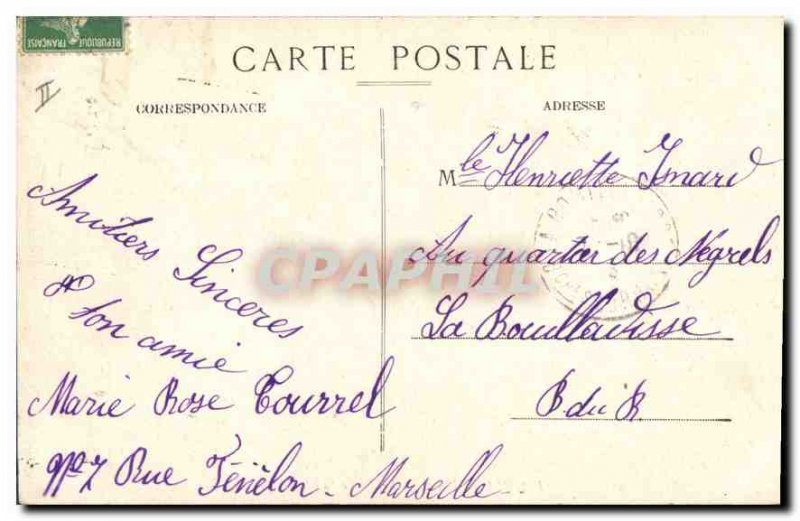 REPUBLIQUE FRANÇAISE
II
CARTE POSTALE
CORRESPONDANCE
Amitiers Sinceres
ton amie
Marie Rose Tourrel
Nº 7 Rue Fénélon - Marseille
ADRESSE
Mlle Henriette Imard
Au quartier des Négrels
La Bouilladisse
B du R
CPAPHIL